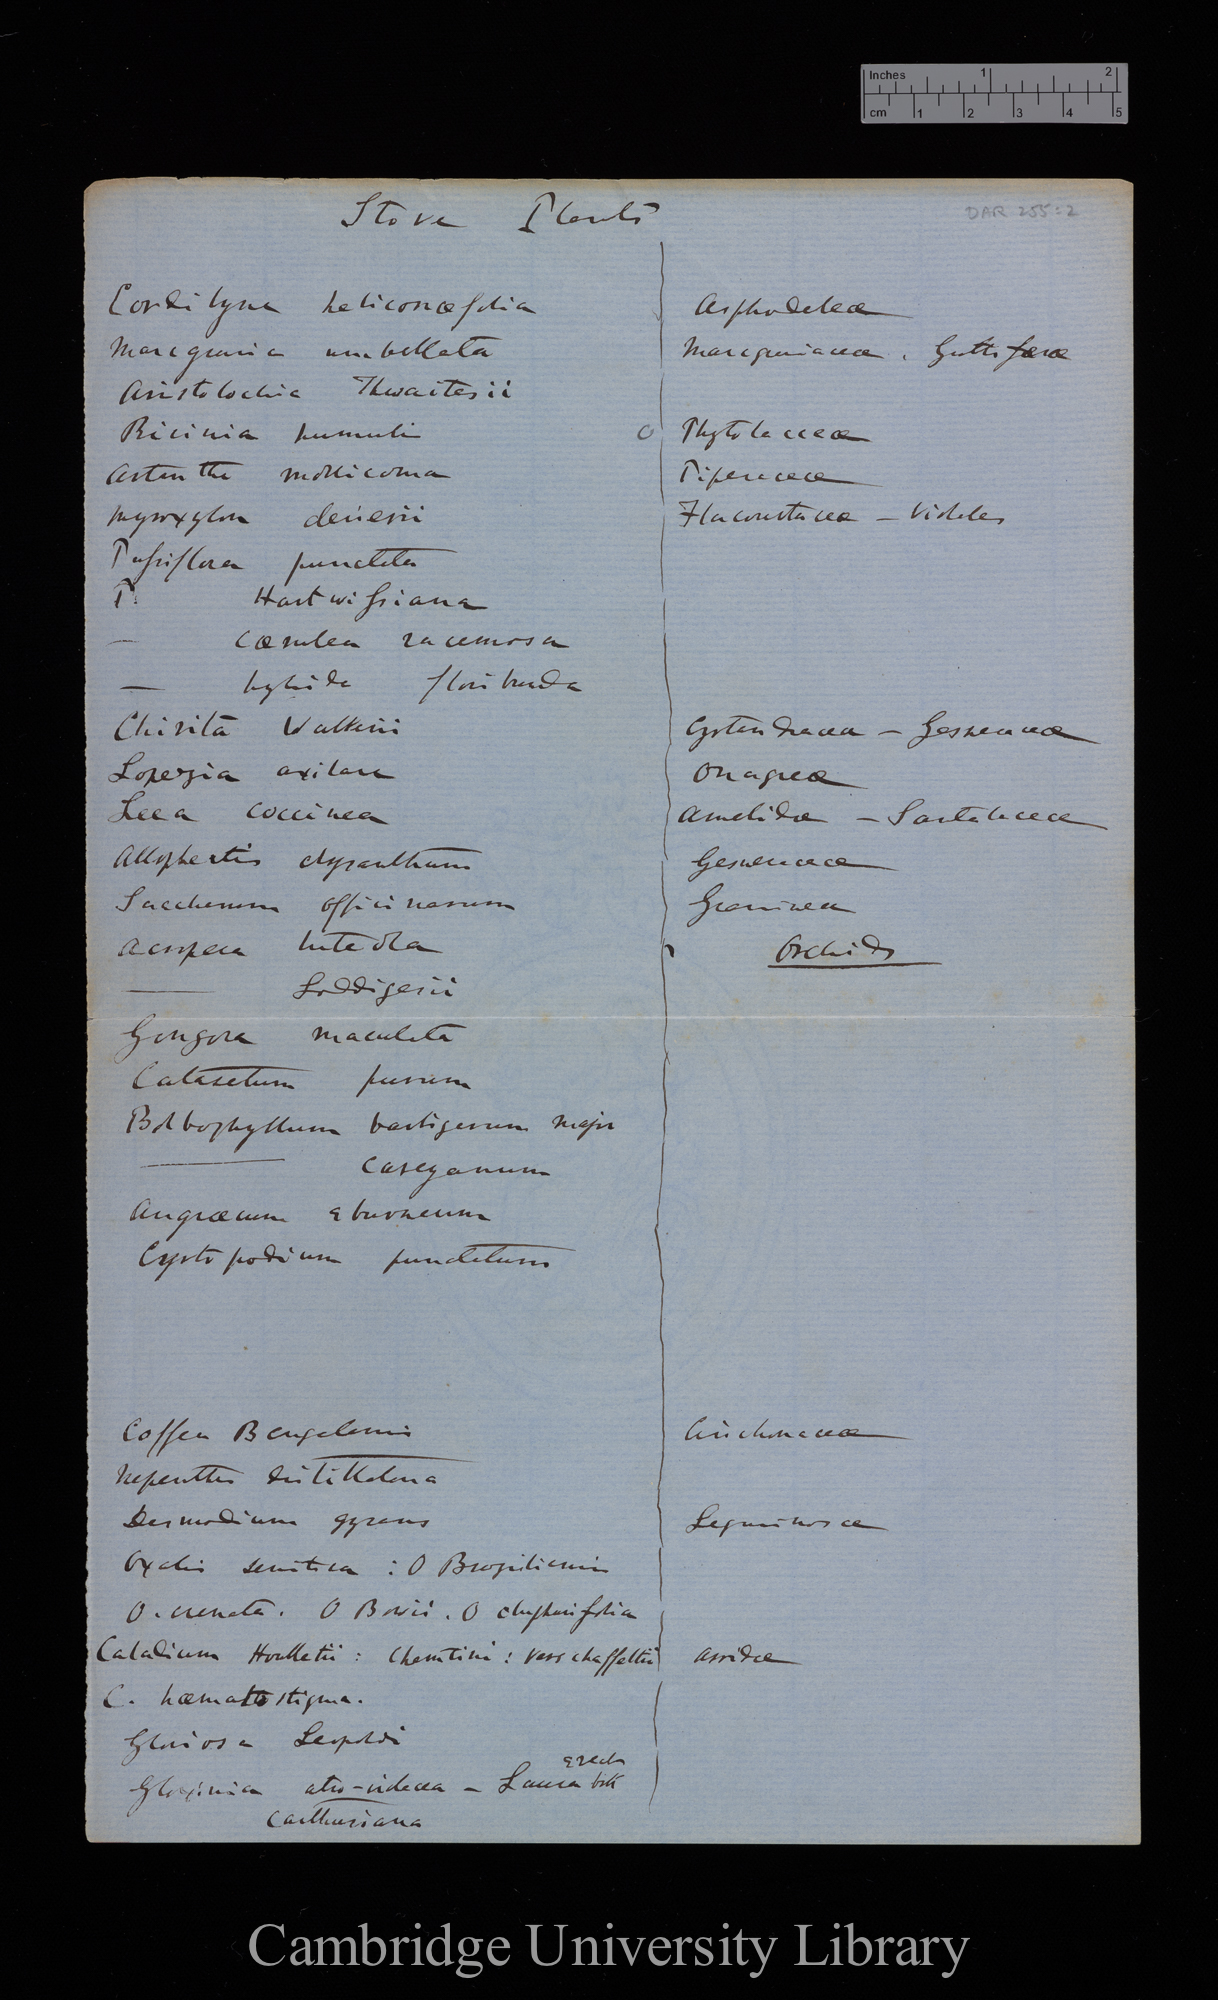 Inches 1 2
cm 1 2 3 4 5
Stove Plants
DAR 255:2
Cordilyna heliconæfolia Asphodeleæ
Marcgravia umbellata Marcgraviaceæ . Guttiferæ
Aristolochia Thwaitesii
Ricinia humuli Phytolacceæ
Artanthe mollicoma Piperaceæ
Myroxylon Flacourtaceæ – Violales
Passiflora punctata
P. Hartwissiana
— cærulea racemosa
— hybrida floribunda
Chirita Walkerii Cyrtandracea – Gesneraceæ
Lopezia axilare Onagreæ
Leea coccinea Amelidæ – Santalaceæ
Allophertis chysanthum Gesneraceæ
Saccharum officinarum Graminea
Acropera luteola Orchids
—— Loddigesii
Gongora maculata
Catasetum purum
Bolbophyllum barbigerum major
—— Careyanum
Angræcum eburneum
Cyrtopodium punctatum
Coffea Bengalensis Cinchonaceæ
Nepenthes distillatoria
Desmodium gyrans Leguminosæ
Oxalis sensitiva : O Braziliensis
O. crenata. O Bowii. O
Caladium Houlletii : Chantini : Verschaffeltii Aroidæ
C. hæmatostigma.
Gloriosa Leopoldi
erecta
Gloxinia atro-violacea – Laura both
Carthusiana
Cambridge University Library